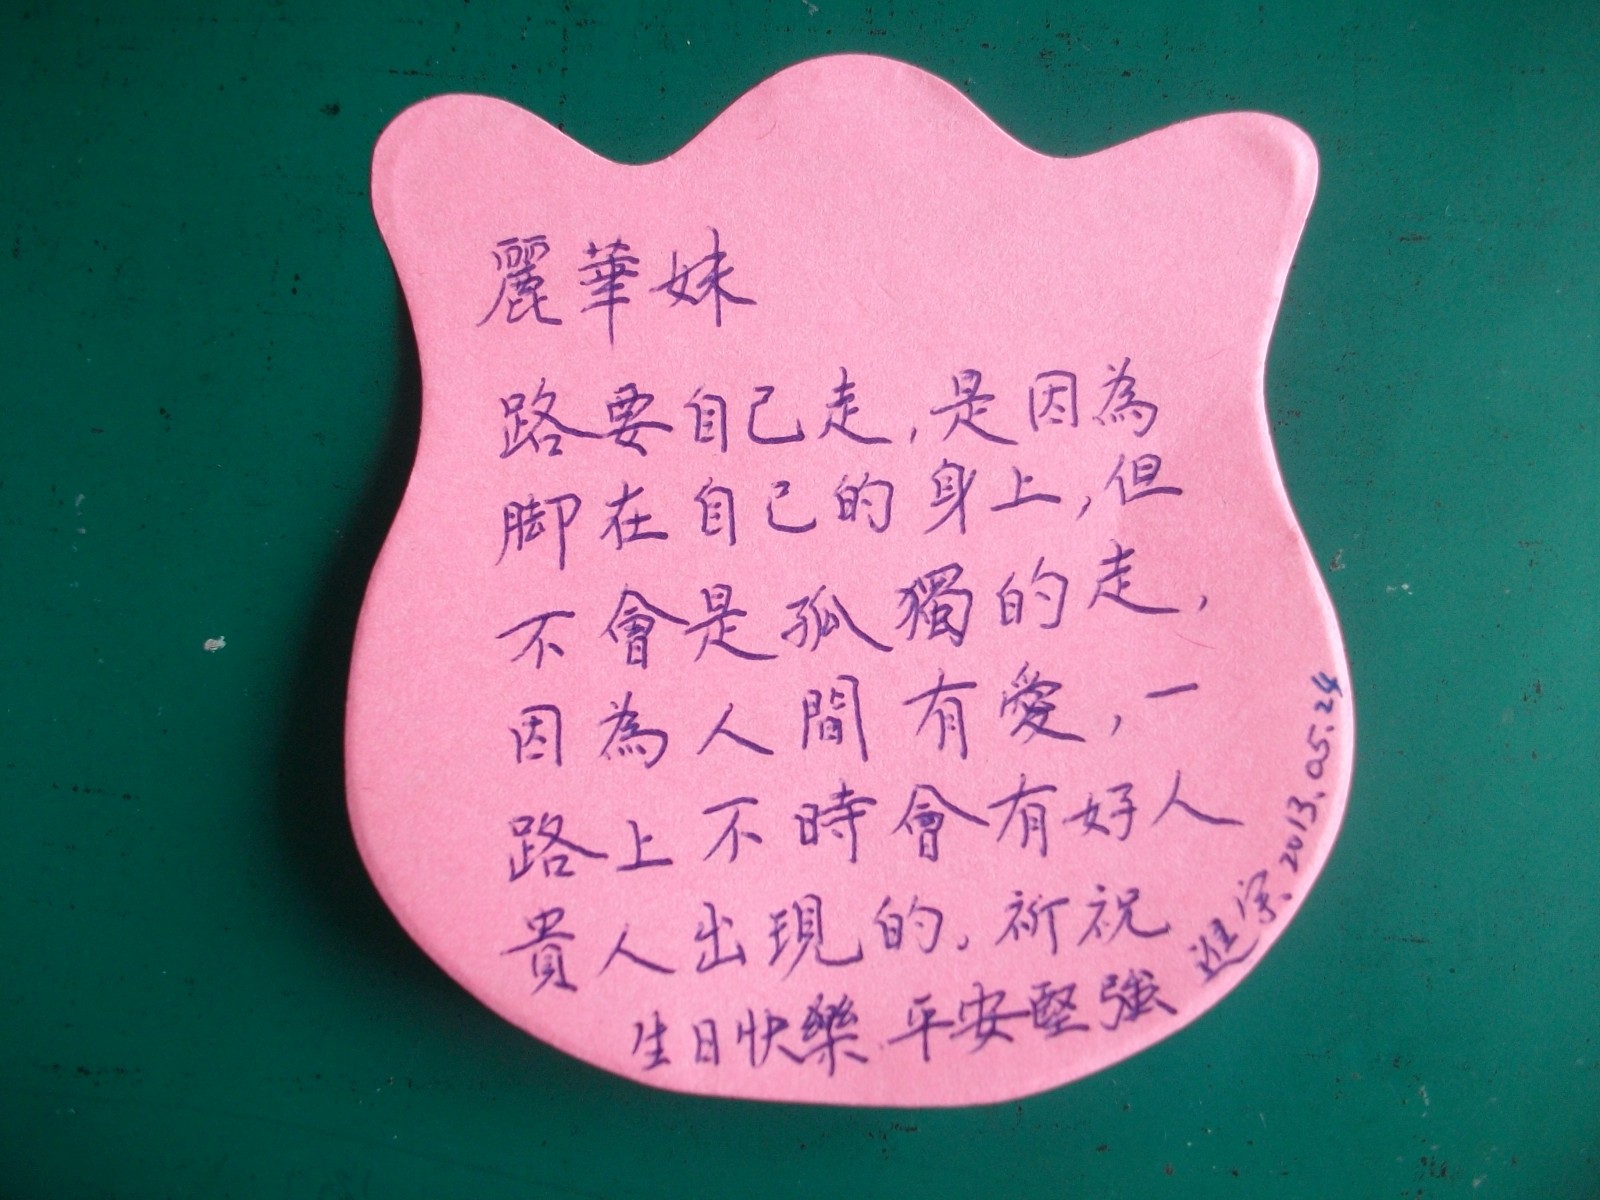 麗華妹
路要自己走,是因為
脚在自己的身上,但
不會是孤獨的走,
因為人間有愛,一
路上不時會有好人
貴人出現的,祈祝
生日快樂 平安堅強
進宗.2013.05.24